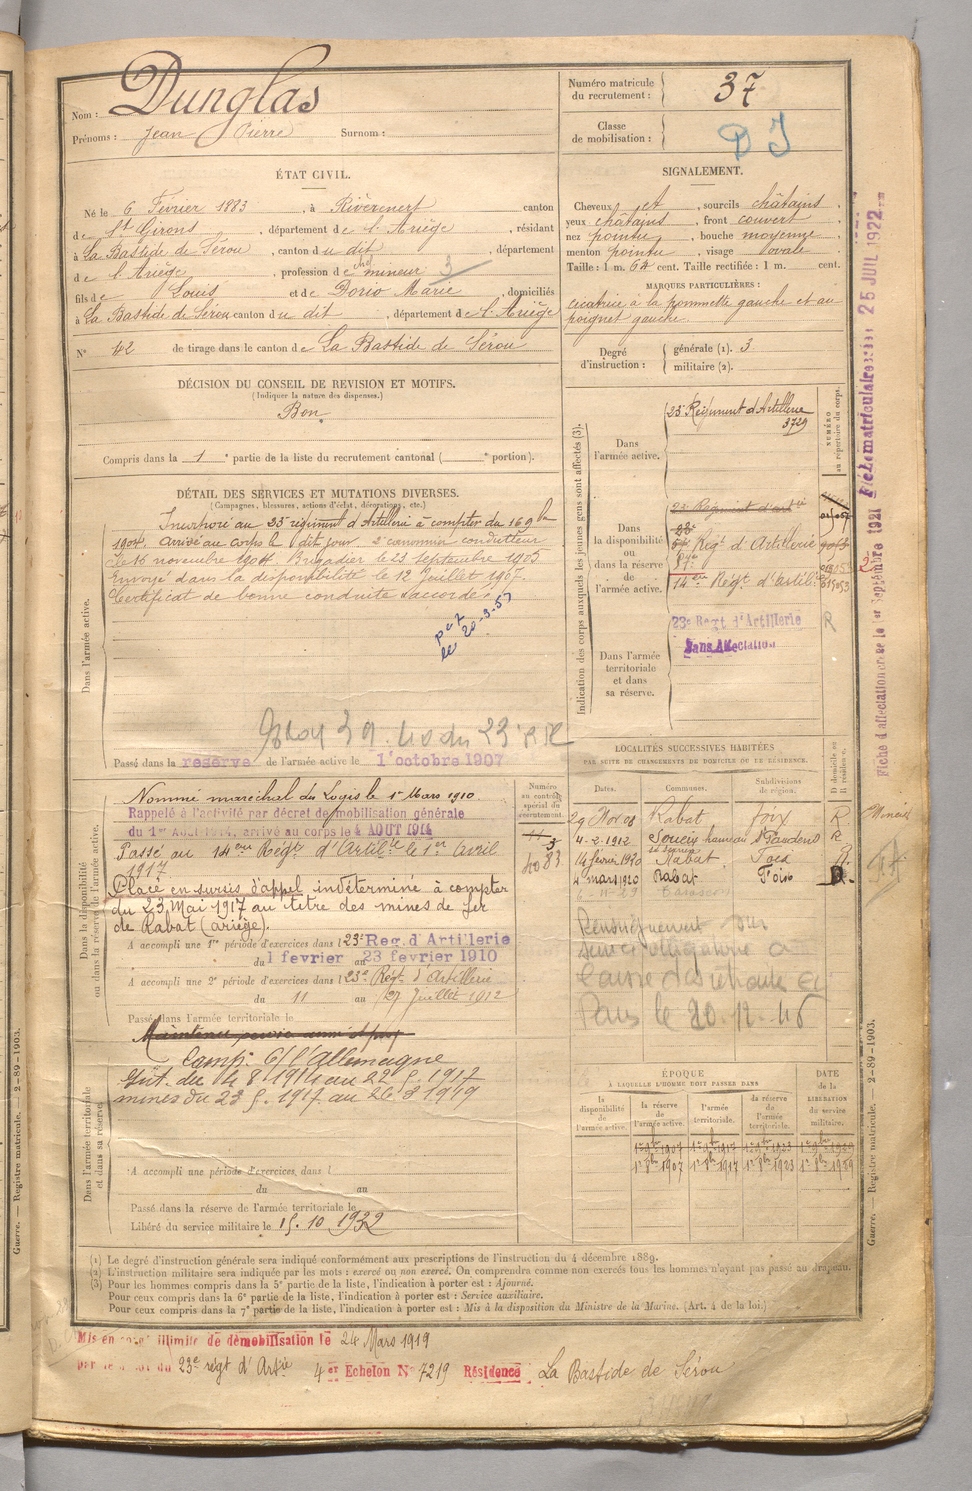 Nom : Dunglas
Prénoms : Jean Pierre Surnom :
Numéro matricule du recrutement : 37
Classe de mobilisation : D J
ÉTAT CIVIL.
Né le 6 Février 1883, à Rivèrenert canton
de St Girons, département de l'Ariège, résidant
à La Bastide de Sérou, canton du dit, département
de l'Ariège, profession de mineur 3
fils de Louis et de Dorio Marie, domiciliés
à La Bastide de Sérou canton du dit, département de l'Ariège
N° 42 de tirage dans le canton de La Bastide de Sérou
SIGNALEMENT.
Cheveux et, sourcils châtains
yeux châtains, front couvert
nez pointu, bouche moyenne
menton pointu, visage ovale
Taille : 1 m. 64 cent. Taille rectifiée : 1 m. cent.
MARQUES PARTICULIÈRES :
cicatrice à la pommette gauche et au
poignet gauche.
Degré d'instruction : générale (1). 3
militaire (2).
DÉCISION DU CONSEIL DE REVISION ET MOTIFS.
(Indiquer la nature des dispenses.)
Bon
Compris dans la 1e partie de la liste du recrutement cantonal ( e portion).
DÉTAIL DES SERVICES ET MUTATIONS DIVERSES.
(Campagnes, blessures, actions d'éclat, décorations, etc.)
Dans l'armée active.
Incorporé au 23e régiment d'Artillerie à compter du 16 9bre
1904. Arrivé au corps le dit jour 2e canonnier conducteur
le 16 novembre 1904. Brigadier le 23 septembre 1905
Envoyé dans la disponibilité le 12 juillet 1907.
Certificat de bonne conduite accordé.
le 20-3-57
39.40 du 23
Passé dans la réserve de l'armée active le 1er octobre 1907
Dans la disponibilité ou dans la réserve de l'armée active.
Nommé maréchal des Logis le 1er Mars 1910.
Rappelé à l'activité par décret de mobilisation générale
du 1er Août 1914, arrivé au corps le 4 AOUT 1914
Passé au 14ème Régt d'Artille le 1er Avril
1917
Placé en sursis d'appel indéterminé à compter
du 23 Mai 1917 au titre des mines de fer
de Rabat (Ariège).
A accompli une 1re période d'exercices dans l 23e Reg. d'Artillerie
du 1 fevrier au 23 fevrier 1910
A accompli une 2e période d'exercices dans l 23e Régt d'Artillerie
du 11 au 27 Juillet 1912
Passé dans l'armée territoriale le
Dans l'armée territoriale et dans sa réserve.
Camp. c/ l'Allemagne
Int. du 4 8 1914 au 22 5. 1917
mines du 23 5. 1917 au 26 3 1919
A accompli une période d'exercices dans l
du au
Passé dans la réserve de l'armée territoriale le
Libéré du service militaire le 15. 10. 1932
Numéro au contrôle spécial du recrutement.
4083
Indication des corps auxquels les jeunes gens sont affectés (3).
NUMÉRO au répertoire du corps.
Dans l'armée active.
23e Régiment d'Artillerie
3729
Dans la disponibilité ou dans la réserve de l'armée active.
23e Régiment d'artie
Régt d'Artillerie
14ème Régt d'Artillie
Dans l'armée territoriale et dans sa réserve.
23e Regt d'Artillerie R
Sans Affectation
LOCALITÉS SUCCESSIVES HABITÉES
PAR SUITE DE CHANGEMENTS DE DOMICILE OU DE RÉSIDENCE.
Dates. Communes. Subdivisions de région. D domicile ou R résidence.
29 Nov 08 Rabat Foix R
4-2-1912 Soucix hameau St Gaudens R
14 février 1920 Rabat Foix R.
4 mars 1920 Rabat Foix D.
Tarascon
Renseignement pour
Caisse des retraites
Paris le 20.12.46
ÉPOQUE
À LAQUELLE L'HOMME DOIT PASSER DANS
DATE de la LIBÉRATION du service militaire.
la disponibilité de l'armée active. la réserve de l'armée active. l'armée territoriale. la réserve de l'armée territoriale.
1er 8bre 1907 1er 8bre 1917 1er 8bre 1923 1er 8bre 1929
(1) Le degré d'instruction générale sera indiqué conformément aux prescriptions de l'instruction du 4 décembre 1889.
(2) L'instruction militaire sera indiquée par les mots : exercé ou non exercé. On comprendra comme non exercés tous les hommes n'ayant pas passé au drapeau.
(3) Pour les hommes compris dans la 5e partie de la liste, l'indication à porter est : Ajourné.
Pour ceux compris dans la 6e partie de la liste, l'indication à porter est : Service auxiliaire.
Pour ceux compris dans la 7e partie de la liste, l'indication à porter est : Mis à la disposition du Ministre de la Marine. (Art. 4 de la loi.)
Mis en congé illimité de démobilisation le 24 Mars 1919
par le dépôt du 23e régt d'Artie 4er Echelon N° 7219 Résidence La Bastide de Sérou
Guerre. — Registre matricule. — 2-89-1903.
Guerre. — Registre matricule. 2-89-1903.
Fiche d'affectation créée le 1er Septembre 1921 Fiche matriculaire créée 25 JUIL 1922